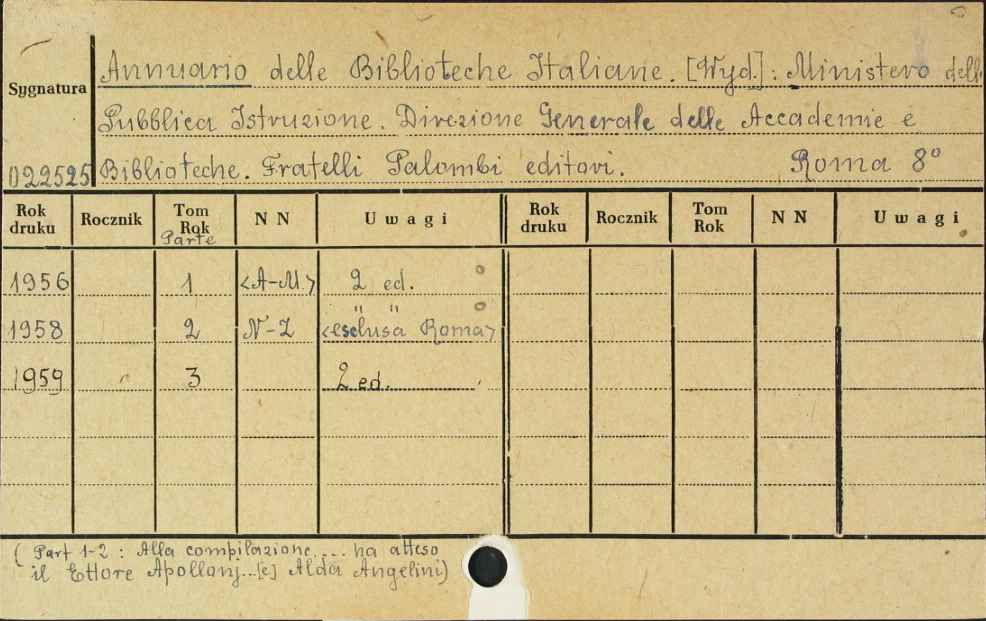 Annuario delle Biblioteche Italiane. [Wyd.]: Ministero dell
Sygnatura
Pubblica Istruzione. Direzione Generale delle Accademie e
022525 Biblioteche. Fratelli Palombi editori. Roma 8°
Rok druku Rocznik Tom Rok Parte N N Uwagi Rok druku Rocznik Tom Rok N N Uwagi
1956 1 <A-M.> 2 ed.
" "
1958 2 N-Z <esclusa Roma>
1959 3 2 ed.
( Part 1-2 : Alla compilazione.... ha atteso
il Ettore Apollonj...[e] Alda Angelini)